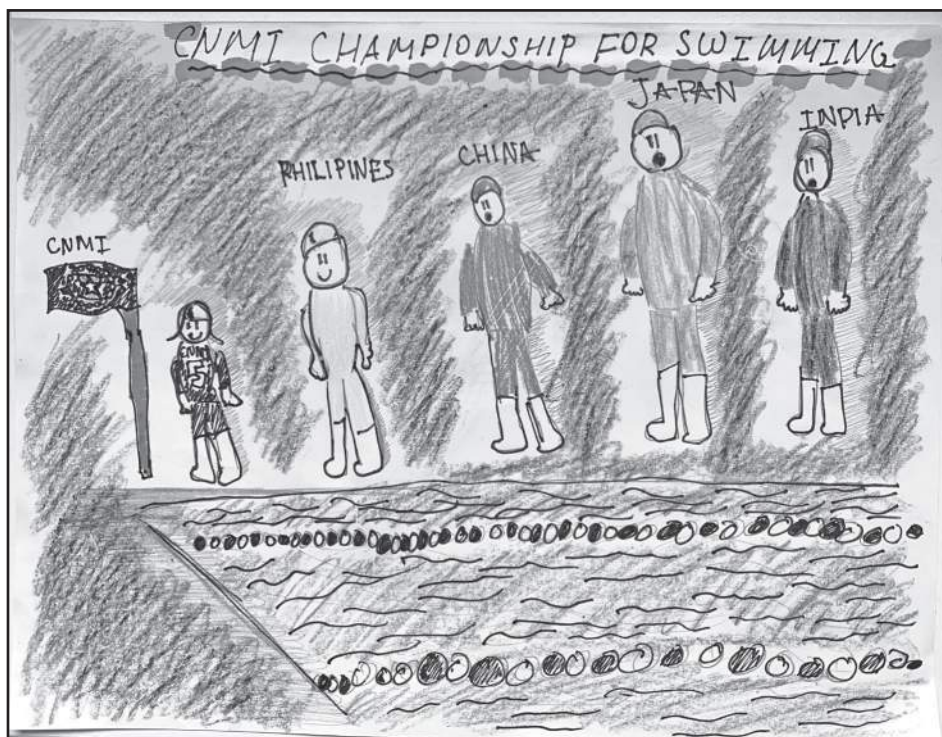 CNMI CHAMPIONSHIP FOR SWIMMING
CNMI
PHILIPINES
CHINA
JAPAN
INDIA
CNMI